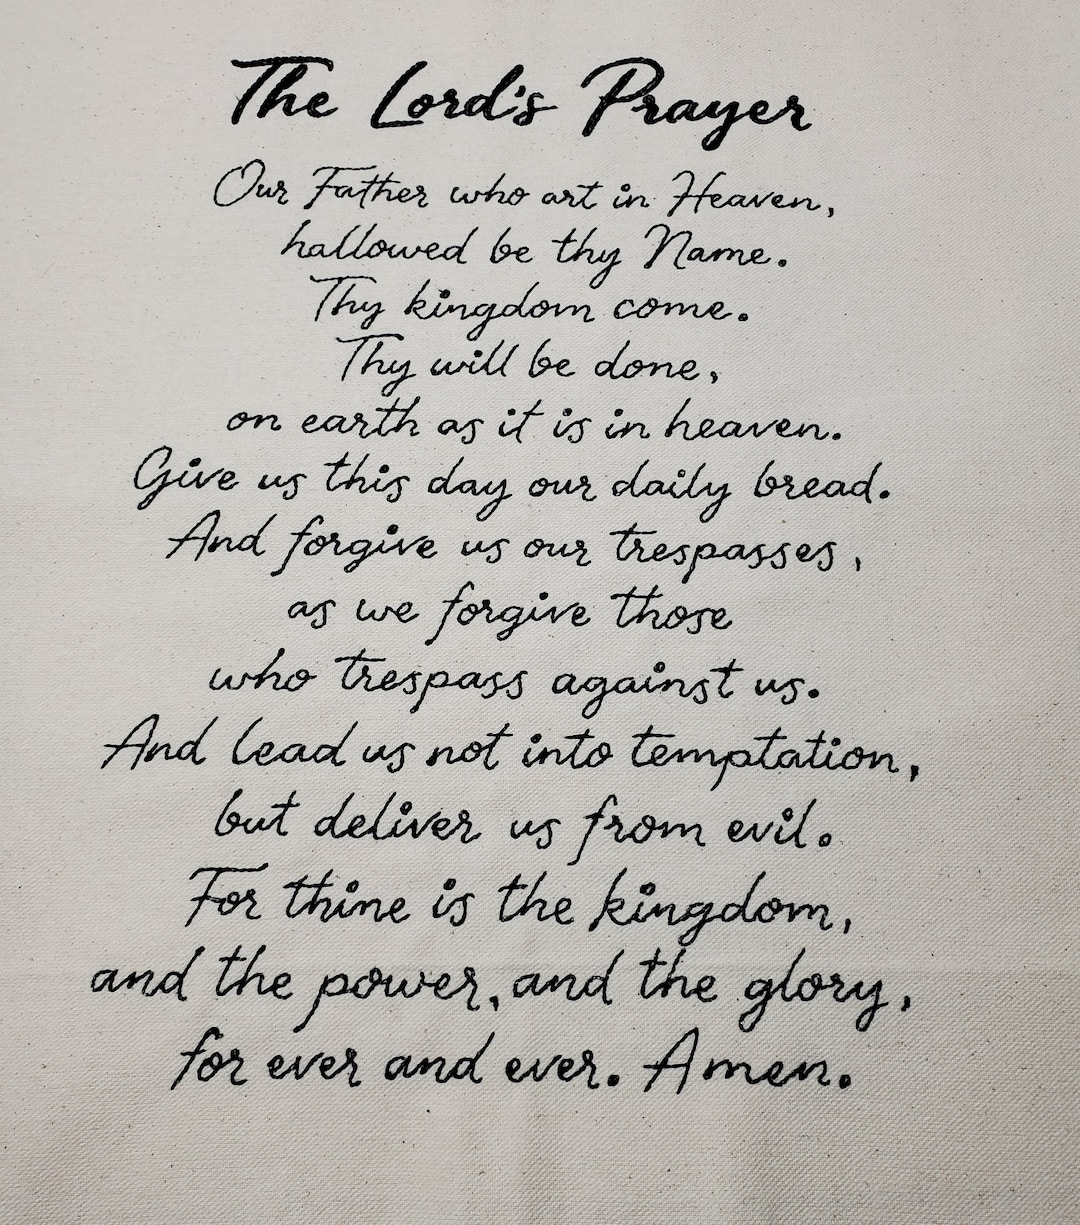 The Lord's Prayer
Our Father who art in Heaven,
hallowed be thy Name.
Thy kingdom come.
Thy will be done,
on earth as it is in heaven.
Give us this day our daily bread.
And forgive us our trespasses,
as we forgive those
who trespass against us.
And lead us not into temptation,
but deliver us from evil.
For thine is the kingdom,
and the power, and the glory,
for ever and ever. Amen.